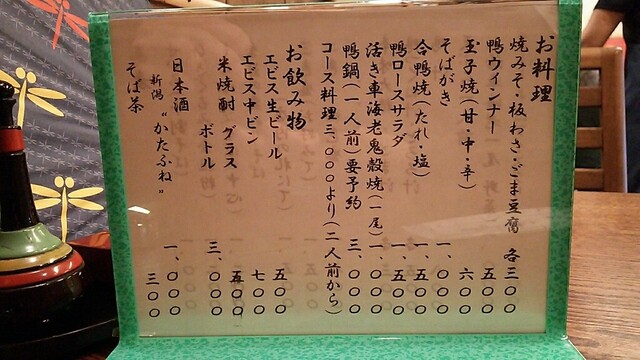 お料理
焼みそ・板わさ・ごま豆腐 各三〇〇
鴨ウィンナー 五〇〇
玉子焼(甘・中・辛) 六〇〇
そばがき 一、〇〇〇
合鴨焼(たれ・塩) 一、五〇〇
鴨ロースサラダ 一、五〇〇
活き車海老鬼殻焼(一尾) 一、〇〇〇
鴨鍋(一人前)要予約 三、〇〇〇
コース料理三、〇〇〇より(二人前から)
お飲み物
エビス生ビール 五〇〇
エビス中ビン 七〇〇
米焼酎 グラス 五〇〇
ボトル 三、〇〇〇
日本酒 一、〇〇〇
新潟 “かたふね”
そば茶 三〇〇